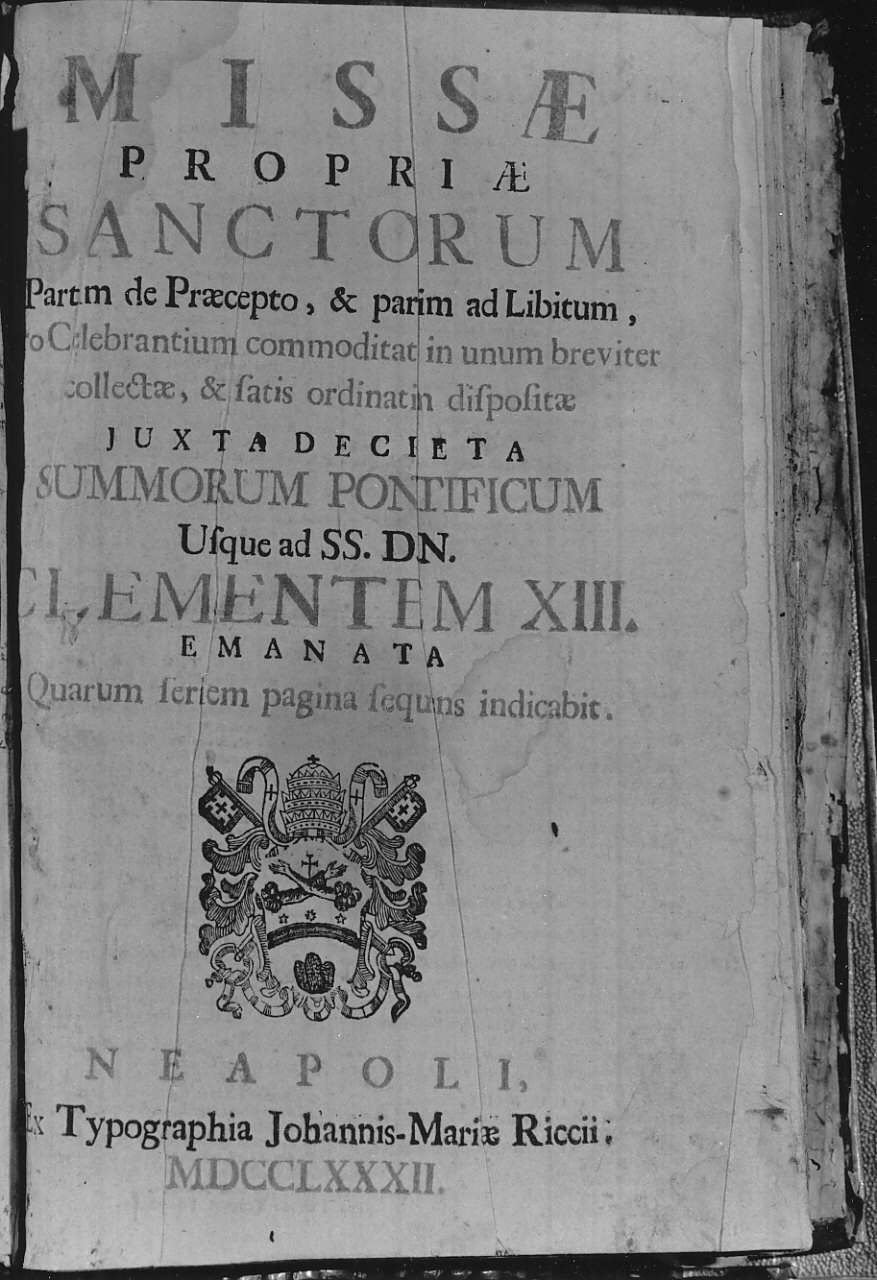 MISSÆ
PROPRIÆ
SANCTORUM
Part.m de Præcepto, & parim ad Libitum,
Celebrantium commoditat in unum breviter
collectæ, & ſatis ordinatin diſpoſitæ
JUXTA DECIETA
SUMMORUM PONTIFICUM
Uſque ad SS. DN.
CLEMENTEM XIII.
EMANATA
Quarum ſeriem pagina ſequns indicabit.
NEAPOLI,
Ex Typographia Johannis-Mariæ Riccii.
MDCCLXXXII.